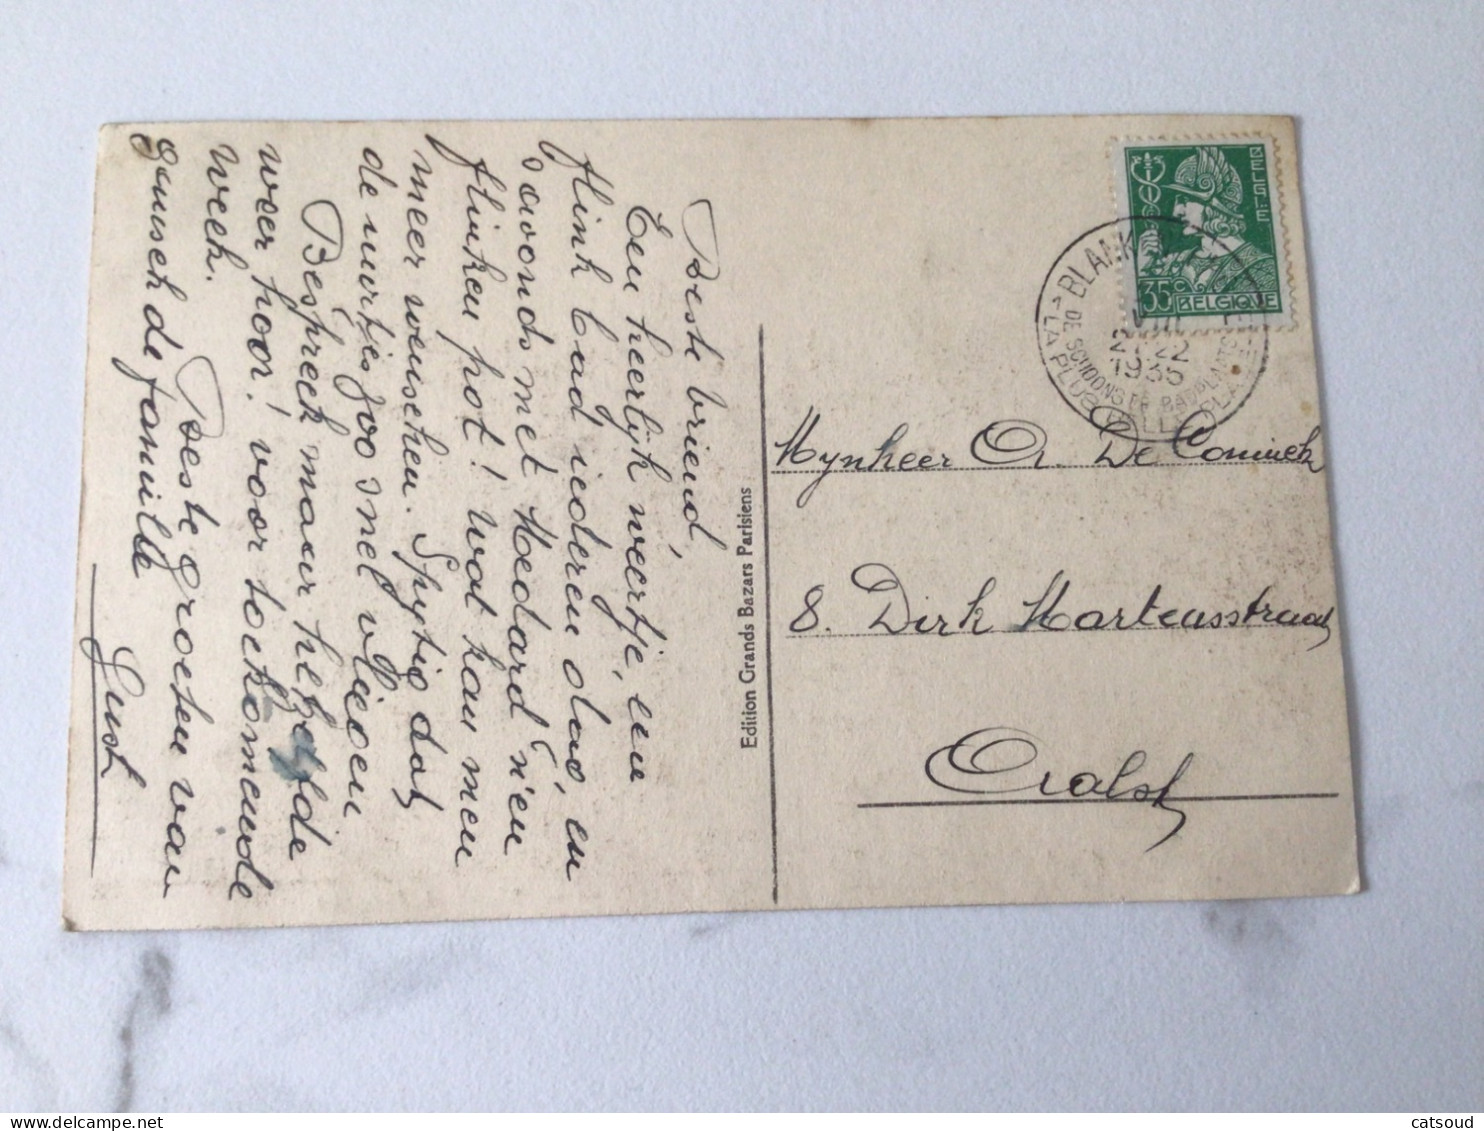 Beste vriend,
Een heerlijk weertje, een
flink bad iederen dag, en
's avonds met Medard n'en
flinken pot! wat kan men
meer wenschen. Spijtig dat
de uurtjes zoo snel vliegen
Bespreek maar hetzelfde
weer hoor! voor toekomende
week.
Beste groeten van
gansch de familie
Gust
Edition Grands Bazars Parisiens
BELGIE
35c BELGIQUE
BLANK
VIII
21-22
1935
DE SCHOONSTE BADPLAATS
LA PLUS BELLE PLAGE
Mynheer Or. De Coninck
8. Dirk Martensstraat
Aalst
catsoud